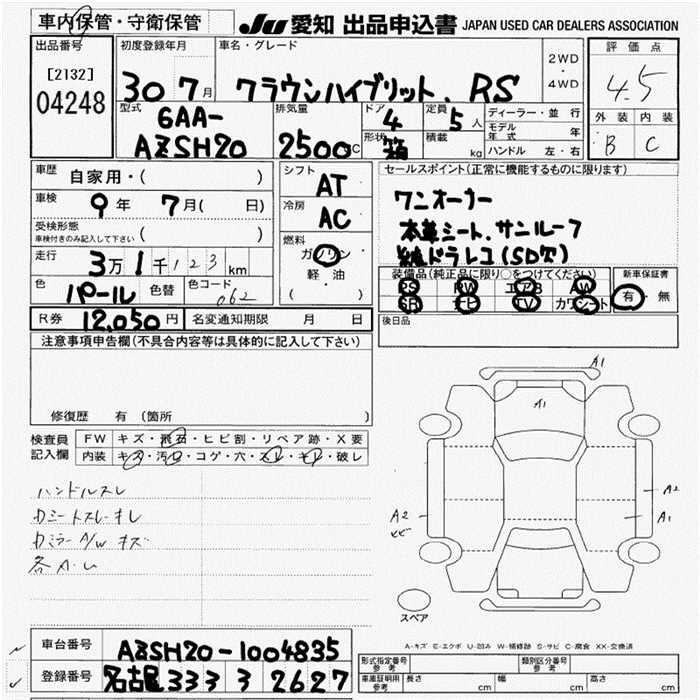 車内保管・守衛保管
JU 愛知 出品申込書 JAPAN USED CAR DEALERS ASSOCIATION
出品番号
[2132]
04248
初度登録年月
30 7月
車名・グレード
クラウンハイブリット、RS
2WD
・
4WD
評価点
4.5
外装 内装
B C
型式
6AA-
AZSH20
排気量
2500CC
ドア
4
形状
箱
定員
5人
積載
kg
ディーラー・並行
モデル年式 年
ハンドル 左・右
車歴
自家用・( )
車検
9年 7月( 日)
受検形態
車検付きのみ記入して下さい ( )
走行
3万1千123km
色
パール
色替
色コード
062
シフト
AT
冷房
AC
燃料
ガソリン
軽油
( )
セールスポイント(正常に機能するものに限ります)
ワンオーナー
本革シート、サンルーフ
純ドラレコ(SD欠)
装備品(純正品に限り○をつけてください)
PS PW エアB AW
SR ナビ TV カワシート
新車保証書
有・無
後日品
R券 12,050円
名変通知期限 月 日
注意事項申告欄(不具合内容等は具体的に記入して下さい)
修復歴 有 (箇所
検査員
記入欄
FW キズ・飛石・ヒビ割・リペア跡・X要
内装 キズ・汚れ・コゲ・穴・スレ・キレ・破レ
ハンドルスレ
カミラーA/Wキズ
A1
A1
A2
A2
A1
スペア
A-キズ E-エクボ U-凹み W-補修跡 S-サビ C-腐食 XX-交換済
車台番号 AZSH20-1004835
登録番号 名古屋 333 ヨ 2627
形式指定番号
参考
類別区分番号
参考
車庫証明用
参考
長さ cm
幅 cm
高さ cm